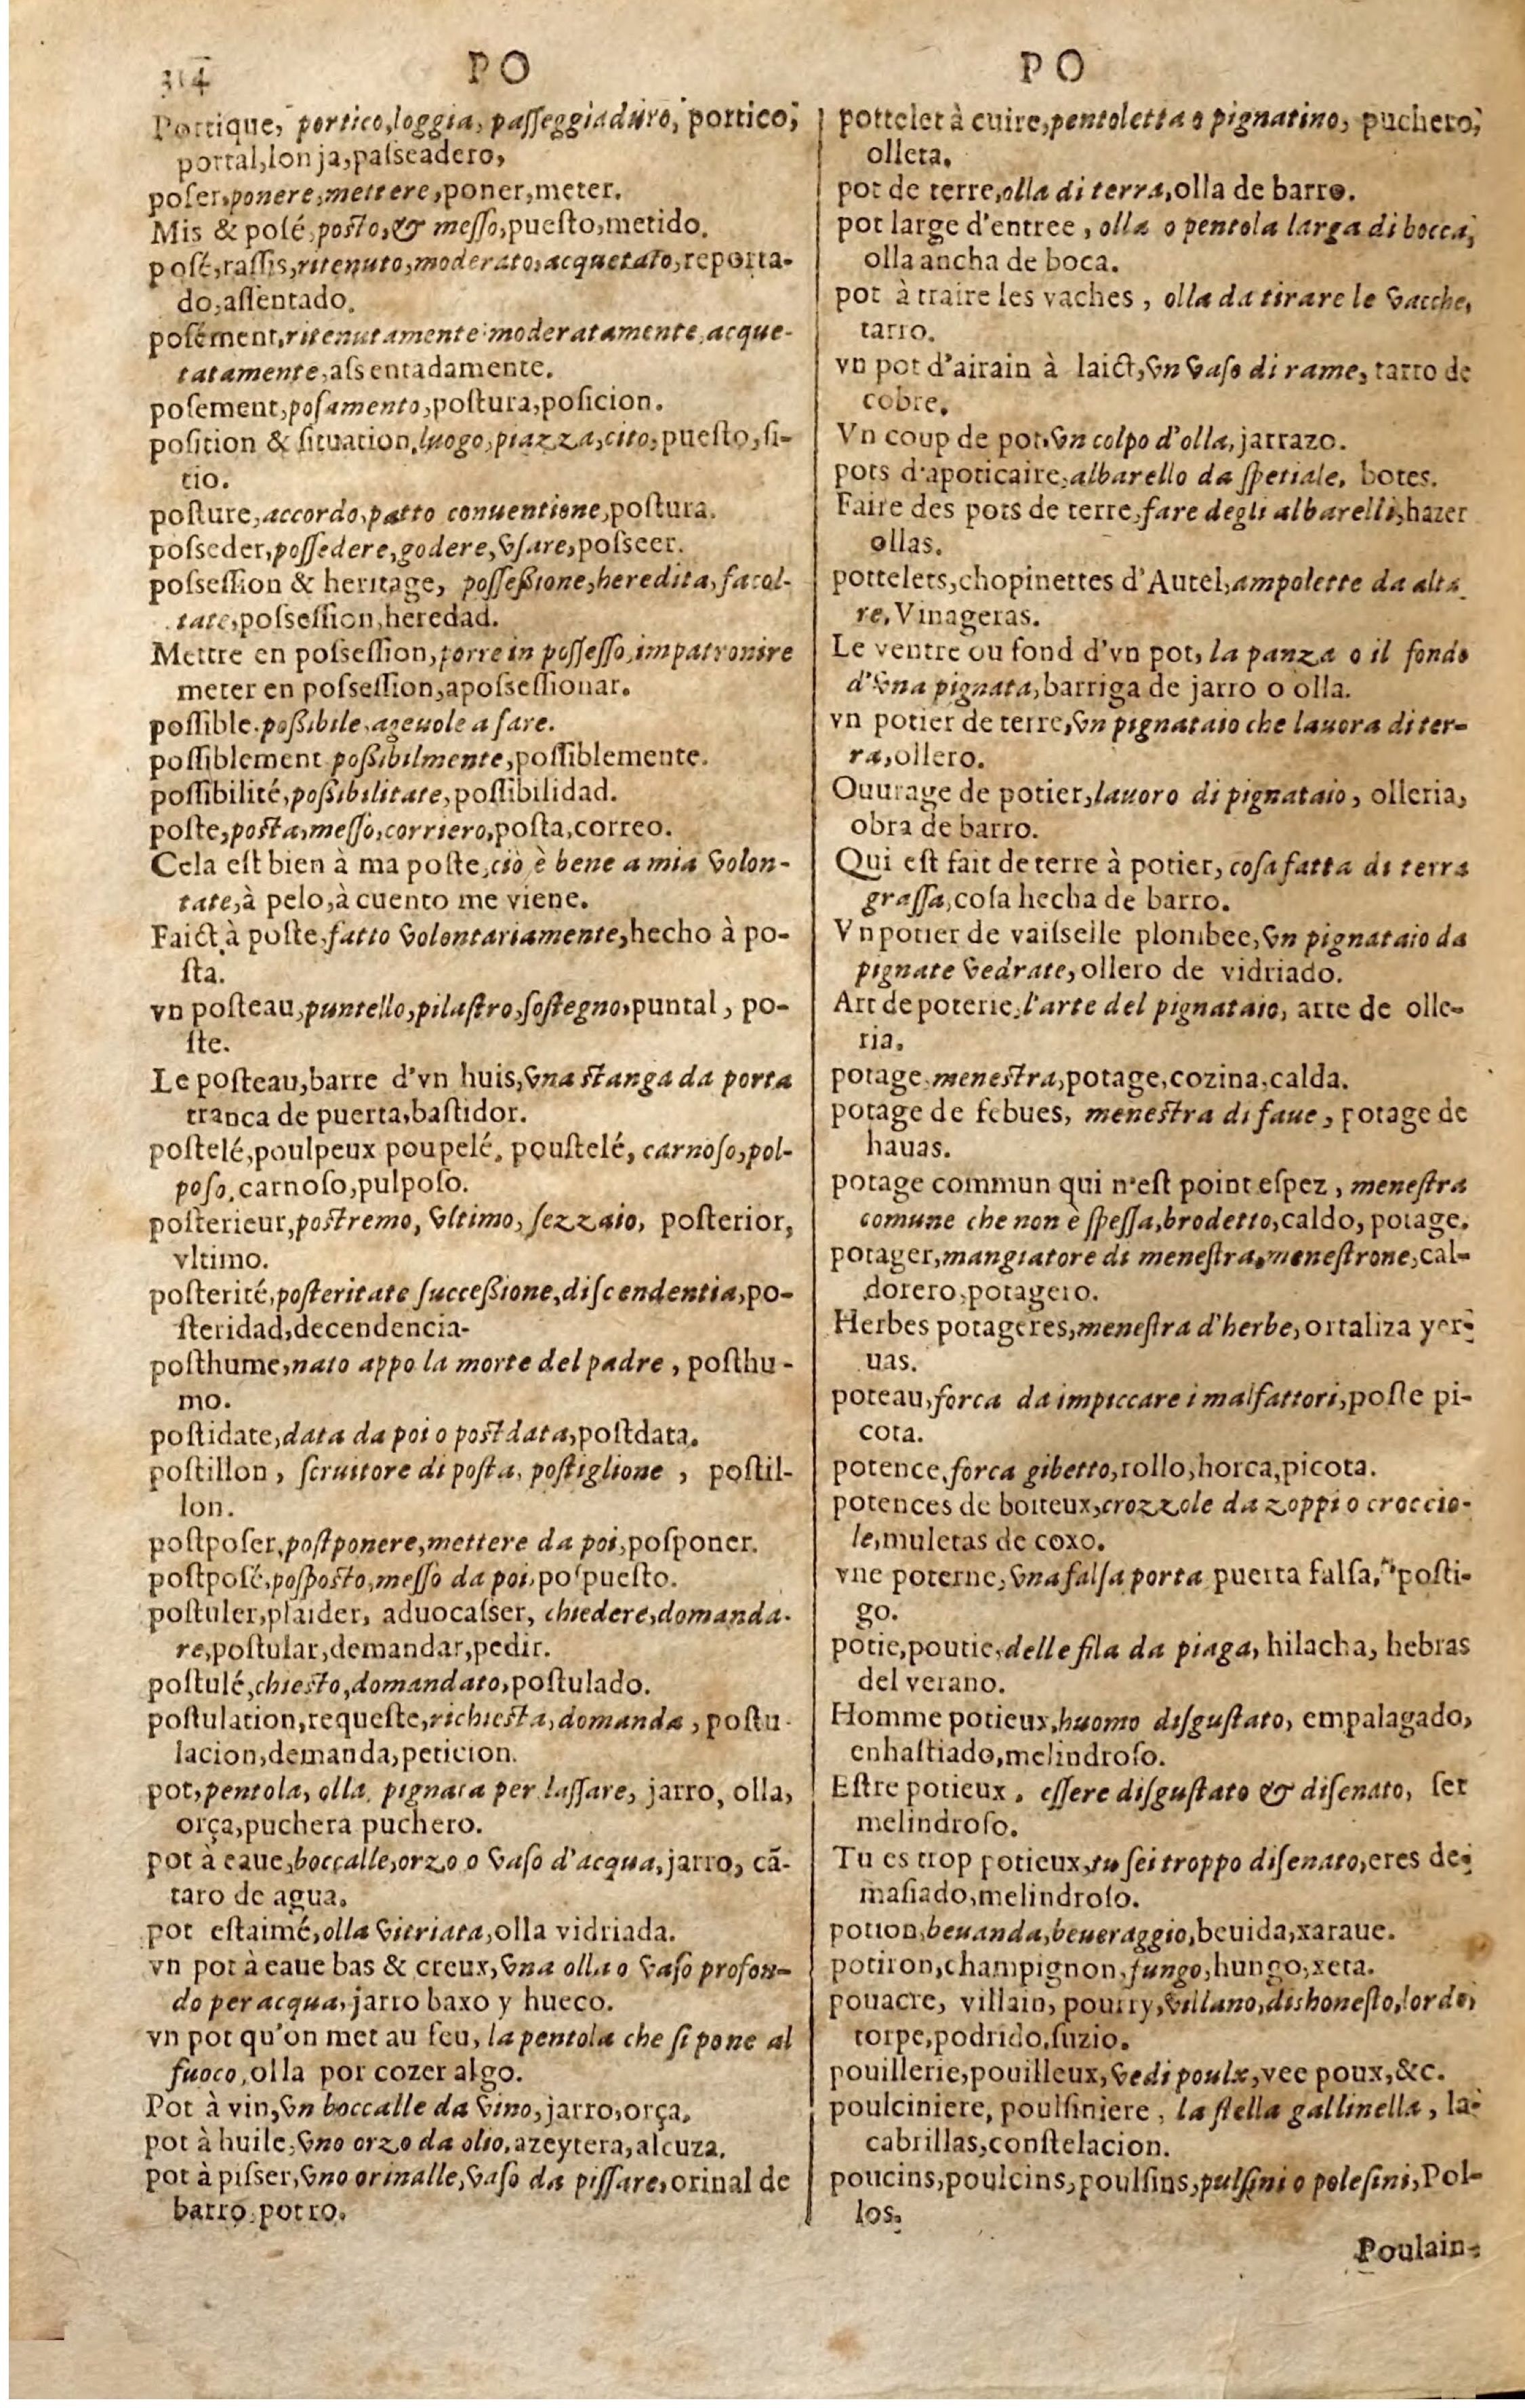 314 PO PO
Portique, portico, loggia, passeggiaduro, portico,
portal, lonja, paſseadero,
poſer, ponere, mettere, poner, meter.
Mis & poſé, posto, & messo, pueſto, metido.
poſé, raſſis, ritenuto, moderato, acquetato, reporta-
do, aſſentado.
poſément, ritenutamente moderatamente, acque-
tatamente, aſsentadamente.
poſement, poſamento, poſtura, poſicion.
poſition & ſituation, luogo, piazza, cito, pueſto, ſi-
tio.
poſture, accordo, patto conuentione, poſtura.
poſseder, poſſedere, godere, vſare, poſseer.
poſseſſion & heritage, poſſeßione, heredita, facol-
tate, poſseſſion, heredad.
Mettre en poſseſſion, porre in poſſeſſo, impatronire
meter en poſseſſion, apoſseſſionar.
poſſible. poßibile, ageuole a fare.
poſſiblement poßibilmente, poſſiblemente.
poſſibilité, poßibilitate, poſſibilidad.
poſte, posta, meſſo, corriero, poſta, correo.
Cela eſt bien à ma poſte, ciò è bene a mia volon-
tate, à pelo, à cuento me viene.
Faict à poſte, fatto volontariamente, hecho à po-
ſta.
vn poſteau, puntello, pilaſtro, ſoſtegno, puntal, po-
ſte.
Le poſteau, barre d'vn huis, vna stanga da porta
tranca de puerta, baſtidor.
poſtelé, poulpeux poupelé, pouſtelé, carnoſo, pol-
poſo, carnoſo, pulpoſo.
poſterieur, postremo, vltimo, ſezzaio, poſterior,
vltimo.
poſterité, poſteritate ſucceßione, diſcendentia, po-
ſteridad, decendencia-
poſthume, nato appo la morte del padre, poſthu-
mo.
poſtidate, data da poi o postdata, poſtdata.
poſtillon, ſeruitore di poſta, poſtiglione, poſtil-
lon.
poſtpoſer, poſtponere, mettere da poi, poſponer.
poſtpoſé, poſposto, meſſo da poi, poſpueſto.
poſtuler, plaider, aduocaſser, chiedere, domanda-
re, poſtular, demandar, pedir.
poſtulé, chiesto, domandato, poſtulado.
poſtulation, requeſte, richiesta, domanda, poſtu-
lacion, demanda, peticion.
pot, pentola, olla, pignata per laſſare, jarro, olla,
orça, puchera puchero.
pot à eaue, boccalle, orzo o vaſo d'acqua, jarro, cã-
taro de agua.
pot eſtaimé, olla vitriata, olla vidriada.
vn pot à eaue bas & creux, vna olla o vaſo profon-
do per acqua, jarro baxo y hueco.
vn pot qu'on met au feu, la pentola che ſi pone al
fuoco, olla por cozer algo.
Pot à vin, vn boccalle da vino, jarro, orça.
pot à huile, vno orzo da olio, azeytera, alcuza.
pot à piſser, vno orinalle, vaſo da piſſare, orinal de
barro, potro.
pottelet à cuire, pentoletta o pignatino, puchero,
olleta.
pot de terre, olla di terra, olla de barro.
pot large d'entree, olla o pentola larga di bocca,
olla ancha de boca.
pot à traire les vaches, olla da tirare le vacche,
tarro.
vn pot d'airain à laict, vn vaſo di rame, tarro de
cobre.
Vn coup de pot, vn colpo d'olla, jarrazo.
pots d'apoticaire, albarello da ſpetiale, botes.
Faire des pots de terre, fare degli albarelli, hazer
ollas.
pottelets, chopinettes d'Autel, ampolette da alta
re, Vinageras.
Le ventre ou fond d'vn pot, la panza o il fondo
d'vna pignata, barriga de jarro o olla.
vn potier de terre, vn pignataio che lauora di ter-
ra, ollero.
Ouurage de potier, lauoro di pignataio, olleria,
obra de barro.
Qui eſt fait de terre à potier, coſa fatta di terra
graſſa, coſa hecha de barro.
Vn potier de vaiſselle plombee, vn pignataio da
pignate vedrate, ollero de vidriado.
Art de poterie, l'arte del pignataio, arte de olle-
ria.
potage, menestra, potage, cozina, calda.
potage de febues, menestra di faue, potage de
hauas.
potage commun qui n'eſt point eſpez, meneſtra
comune che non è ſpeſſa, brodetto, caldo, potage.
potager, mangiatore di meneſtra, meneſtrone, cal-
dorero, potagero.
Herbes potageres, meneſtra d'herbe, ortaliza yer-
uas.
poteau, forca da impiccare i malfattori, poſte pi-
cota.
potence, forca gibetto, rollo, horca, picota.
potences de boiteux, crozzole da zoppi o croccio-
le, muletas de coxo.
vne poterne, vna falſa porta puerta falſa, poſti-
go.
potie, poutie, delle fila da piaga, hilacha, hebras
del verano.
Homme potieux, huomo diſguſtato, empalagado,
enhaſtiado, melindroſo.
Eſtre potieux, eſſere diſguſtato & diſenato, ſer
melindroſo.
Tu es trop potieux, tu ſei troppo diſenato, eres de-
maſiado, melindroſo.
potion, beuanda, beueraggio, beuida, xaraue.
potiron, champignon, fungo, hungo, xeta.
pouacre, villain, pourry, villano, dishoneſto, lordo,
torpe, podrido, ſuzio.
pouillerie, pouilleux, vedi poulx, vee poux, &c.
poulciniere, poulſiniere, la ſtella gallinella, la-
cabrillas, conſtelacion.
poucins, poulcins, poulſins, pulſini o poleſini, Pol-
los.
Poulain-